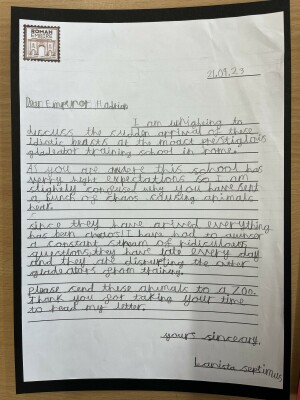 ROMAN
EMPIRE
21.09.23
Dear Emperor Hadrian
I am writing to
discuss the sudden arrival of these
idiotic beasts at the most prestigious
gladiator training school in rome.
As you are aware this school has
verry hight expectations so I am
slightly confused why you have sent
a bunch of chaos causing animals
here.
since they have arived everything
has been chaos! I have had to awnser
a constant stream of ridiculous
questions, they have late every day
and they are disrupting the other
gladiators from training.
Please send these animals to a Zoo.
Thank you for taking your time
to read my letter.
yours sinceary,
Lanista septimus